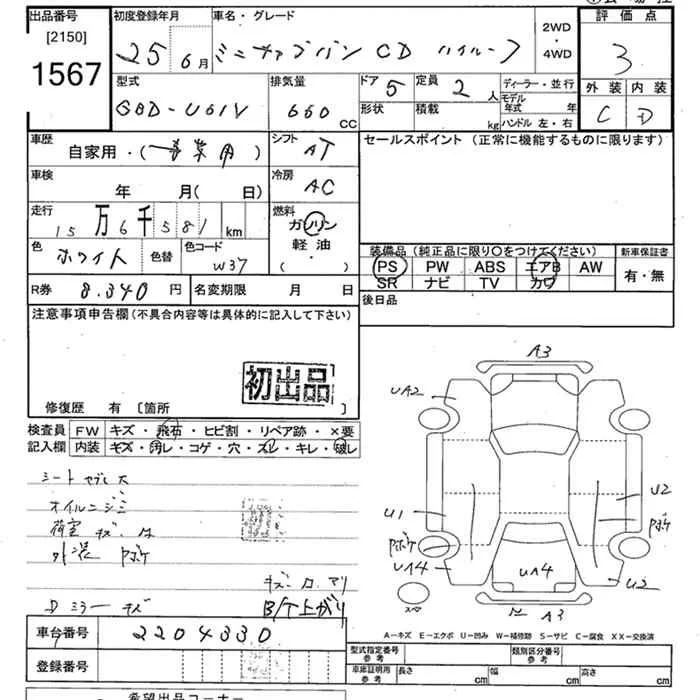 出品番号 初度登録年月 車名・グレード 2WD ・ 4WD 評価点
[2150]
1567 25年6月 ミニキャブバン CD ハイルーフ 3
型式 排気量 ドア 5 定員 2人 ディーラー・並行 外装 内装
GBD-U61V 660CC 形状 積載 kg モデル年式 年 C D
ハンドル 左・右
車歴 自家用・(事業用) シフト AT セールスポイント (正常に機能するものに限ります)
車検 年 月( 日) 冷房 AC
走行 15万6千581km 燃料 ガソリン
軽油
( )
色 ホワイト 色替 色コード W37
装備品 (純正品に限り○をつけてください) 新車保証書
PS PW ABS エアB AW 有・無
SR ナビ TV カワ
R券 8.340円 名変期限 月 日 後日品
注意事項申告欄(不具合内容等は具体的に記入して下さい)
初出品
修復歴 有 [箇所 ]
検査員 FW キズ・飛石・ヒビ割・リペア跡・×要
記入欄 内装 キズ・汚レ・コゲ・穴・スレ・キレ・破レ
シートヤブレ大
オイルニジミ
荷室 キズ・
外装 Pボケ
キズ・
Dミラーキズ B/T上がり
A3
UA2
U1 U2
Pボケ Pボケ
UA4 UA4 U2
スペ A3
A-キズ E-エクボ U-凹み W-補修跡 S-サビ C-腐食 XX-交換済
車台番号 2204330
登録番号
型式指定番号 参考 類別区分番号 参考
車庫証明用 参考 長さ cm 幅 cm 高さ cm
希望出品コーナー